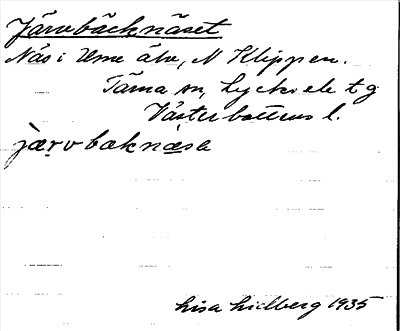 Järvbäcknäset
Näs i Ume älv, N Klippen.
Tärna sn, Lycksele tg
Västerbottens l.
jærvbaknæsa
Lisa Lidberg 1935